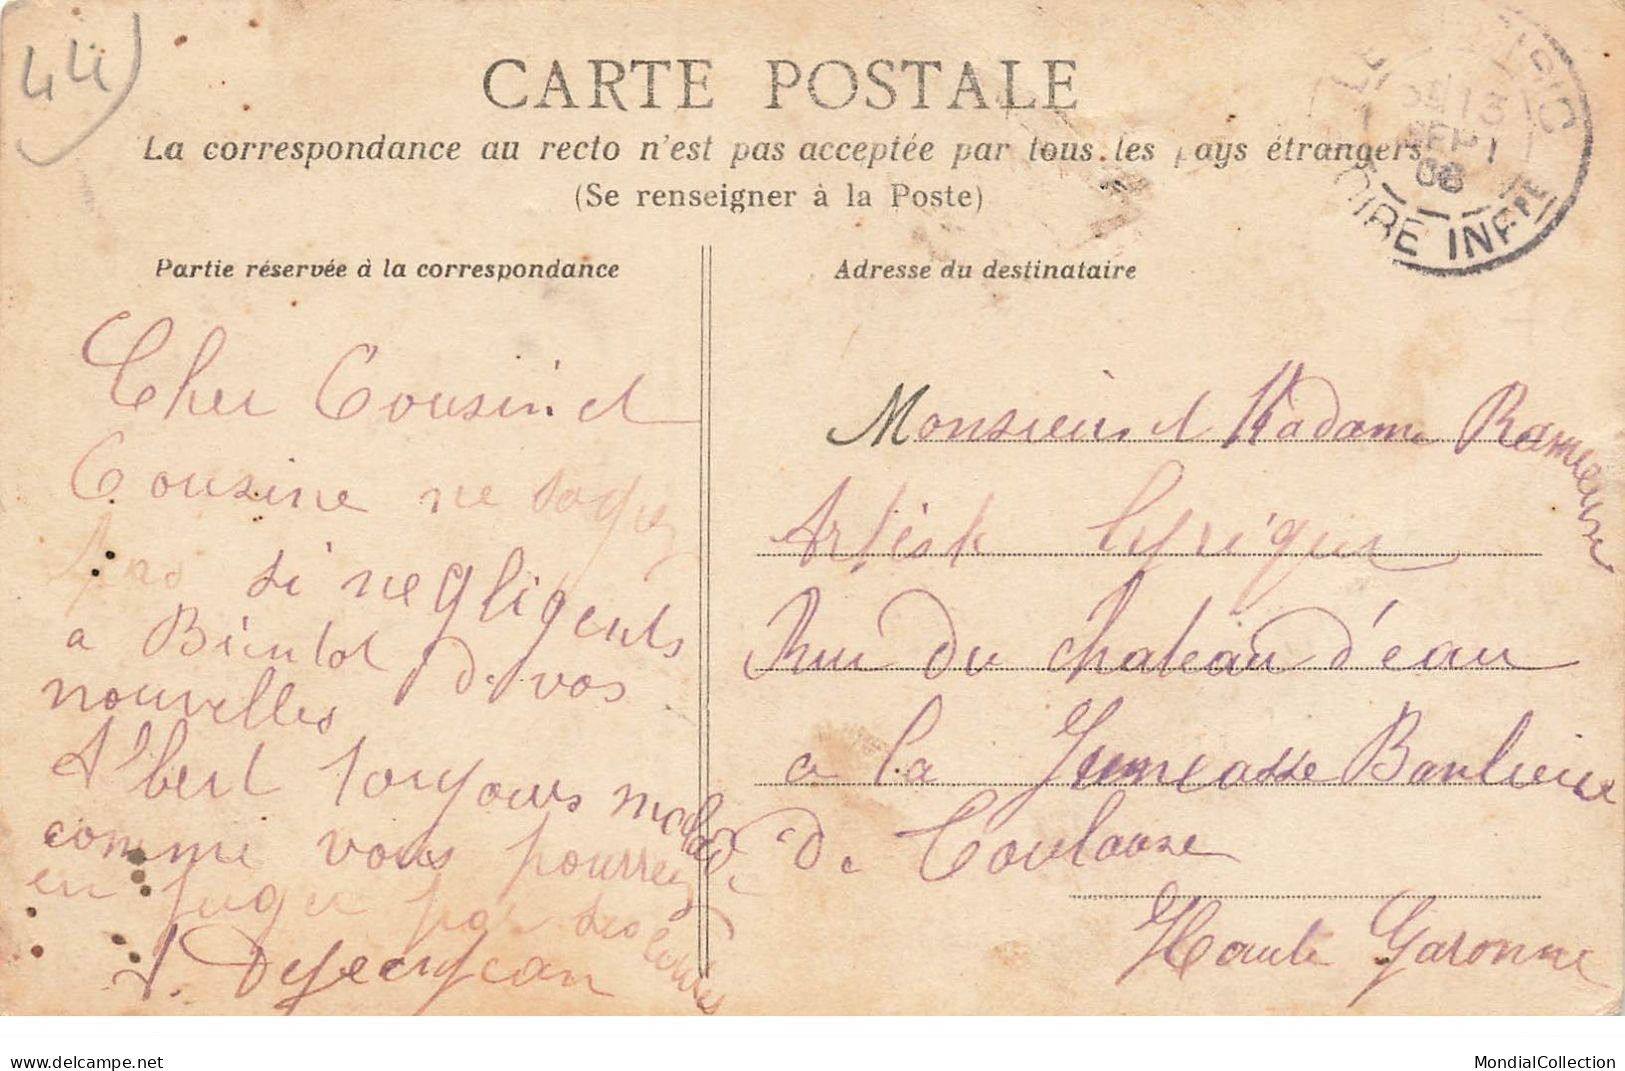 44
CARTE POSTALE
La correspondance au recto n'est pas acceptée par tous les pays étrangers
(Se renseigner à la Poste)
LE
13
SEPT
08
LOIRE INFRE
Partie réservée à la correspondance
Cher Cousin et
Cousine ne soyez
pas si negligents
a Bientot de vos
nouvelles
Albert toujours malade
comme vous pourrez
en juger par ses
Adresse du destinataire
Monsieur et Madame
Artiste lyrique
Rue du chateau d'eau
a la Banlieue
de Toulouse
Haute Garonne
delcampe.net
MondialCollection